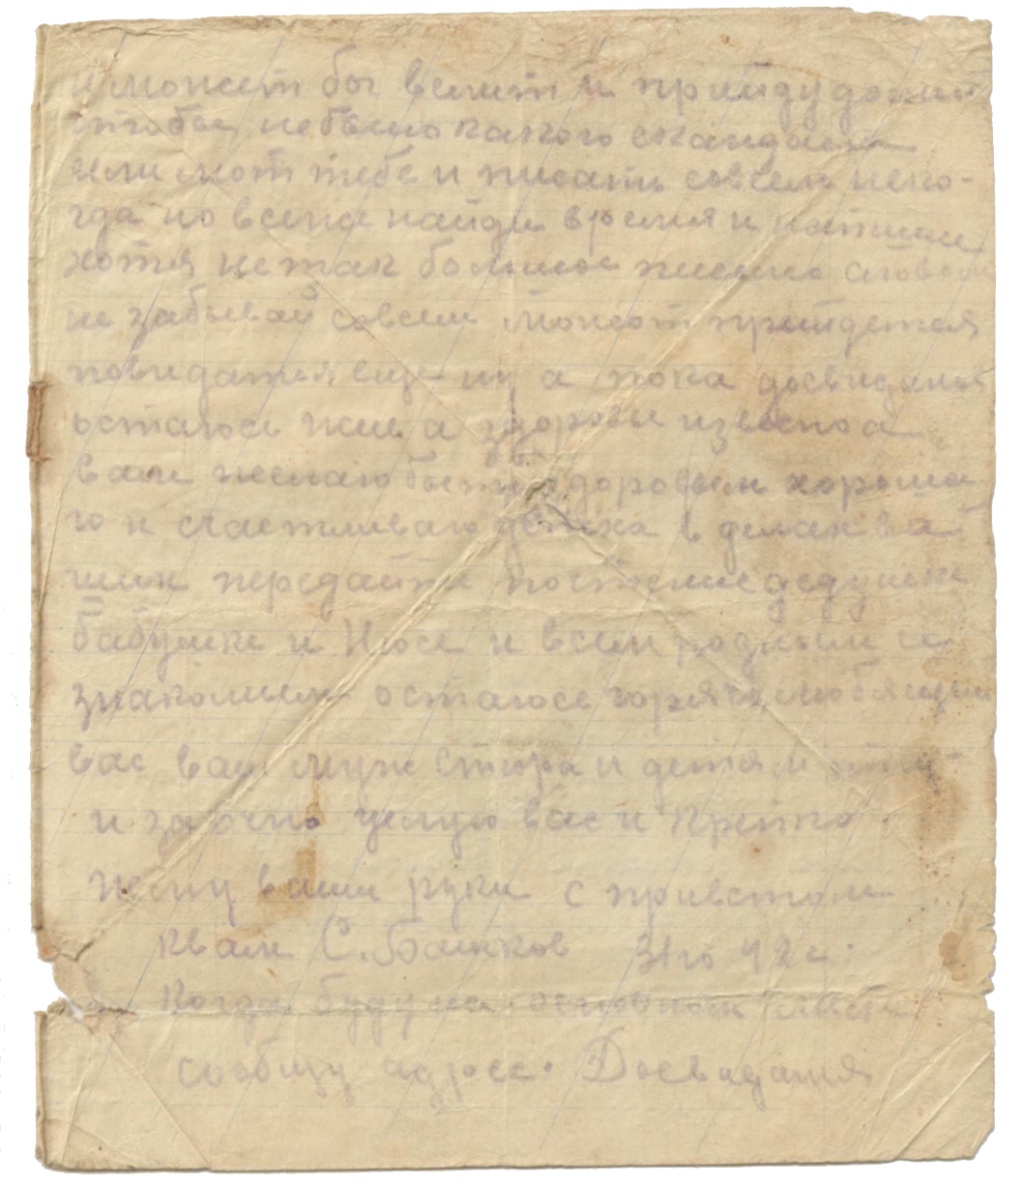 и может бы велит и прийду домой
чтобы небыло какого скандала
или может тебе и писать совсем неко-
гда но всеже найди время и напиши
хотя не так большое письмо
не забывай совсем может прийдется
повидатся еще ну а пока досвиданья
остаюсь жив а здоровье известно а
вам желаю быть здоровьем хороша
го и счастливаго в делах ва
ших передайте почтение дедушке
бабушке и Нюсе и всем родным и
знакомым остаюсь горячо любящий
вас ваш муж и детям
и заочно целую вас и крепко
жму ваши руки с приветом
квам С. Башков 31го 42г.
Когда буду на основном месте
сообщу адресс. Досвидания